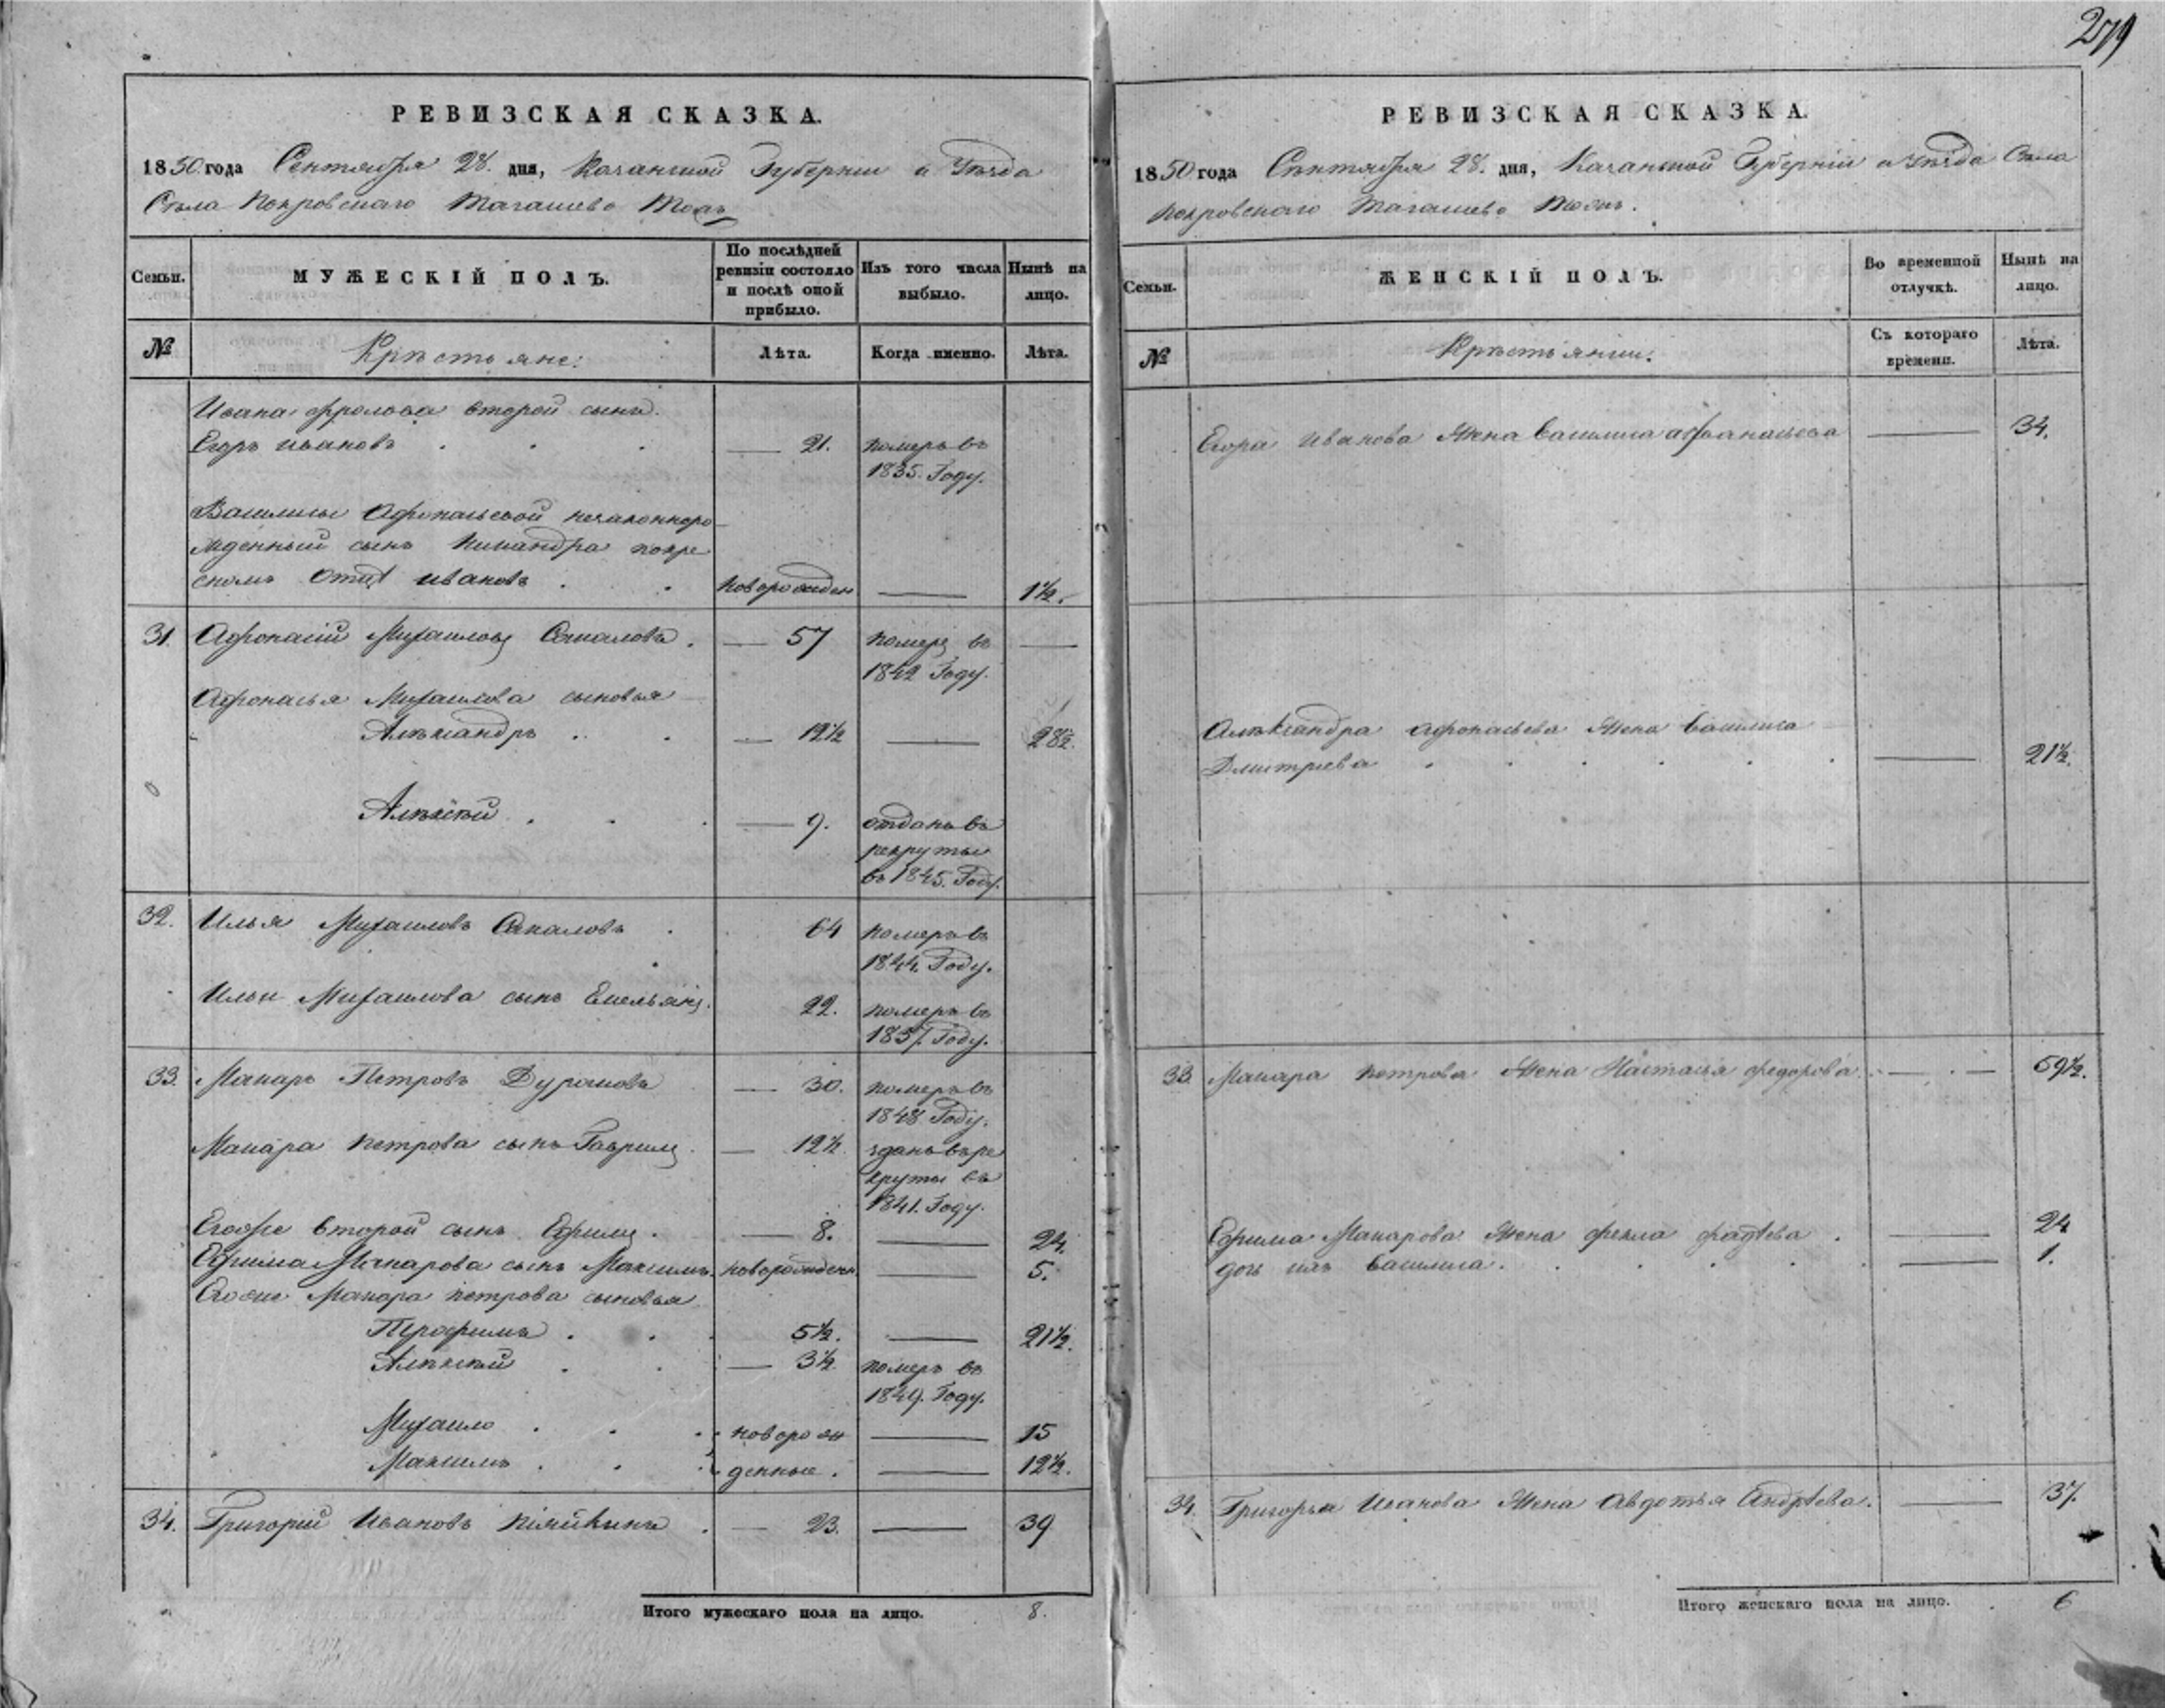 279
РЕВИЗСКАЯ СКАЗКА.
1850 года Сентября 28. дня, Казанской Губернии и Уѣзда
Села Покровскаго Тагашево тожъ
Семьи.
МУЖЕСКІЙ ПОЛЪ.
По послѣдней ревизіи состояло и послѣ оной прибыло.
Изъ того числа выбыло.
Нынѣ на лицо.
№
Крѣстьяне:
Лѣта.
Когда именно.
Лѣта.
Ивана Фролова второй сынъ.
Егоръ Ивановъ . . . 21. померъ въ
1835. Году.
Василисы Афонасьевой незаконноро
жденный сынъ Никандра покре
сномъ отцѣ Ивановъ . . новорожден 1½.
31. Афонасій Михаиловъ . 57 померъ въ
1842 Году.
Афонасья Михаилова сыновья
Алѣксандръ . . 12½ 28½.
Алѣксѣй . . . 9. отданъ въ
рекруты
въ 1845. Году.
32. Илья Михаиловъ . 64 померъ въ
1844. Году.
Ильи Михаилова сынъ Емельянъ. 22. померъ въ
1837. Году.
33. Макаръ Петровъ Дурановъ 30. померъ въ
1848. Году.
Макара Петрова сынъ Гаврилъ. 12½. зданъ въ ре
круты въ
1841. Году.
Егоже второй сынъ Ефимъ. 8. 24.
Ефима Макарова сынъ Максимъ. новорожден. 5.
Егоже Макара Петрова сыновья
Трофимъ . . . 5½. 21½.
Алѣксѣй . . 3½ померъ въ
1849. Году.
Михаило . . . новорож 15
Максимъ . . . денные. 12½.
34. Григорій Ивановъ . 23. 39
Итого мужескаго пола на лицо. 8.
РЕВИЗСКАЯ СКАЗКА.
1850 года Сентября 28. дня, Казанской Губерніи и Уѣзда Села
Покровскаго Тагашево тожъ.
Семьи.
ЖЕНСКІЙ ПОЛЪ.
Во временной отлучкѣ.
Нынѣ на лицо.
№
Крѣстьянки.
Съ котораго времени.
Лѣта.
Егора Иванова жена Василиса Афанасьева 34.
Алѣксандра Афонасьева жена Василиса
Дмитриева . . . . . . 21½.
33. Макара Петрова жена Настасья Федорова. 59½.
Ефима Макарова жена Фекла Фадѣева . 24
дочь ихъ Василиса. . . . . . 1.
34. Григорья Иванова жена Авдотья Андрѣева. 37.
Итого женскаго пола на лицо. 6